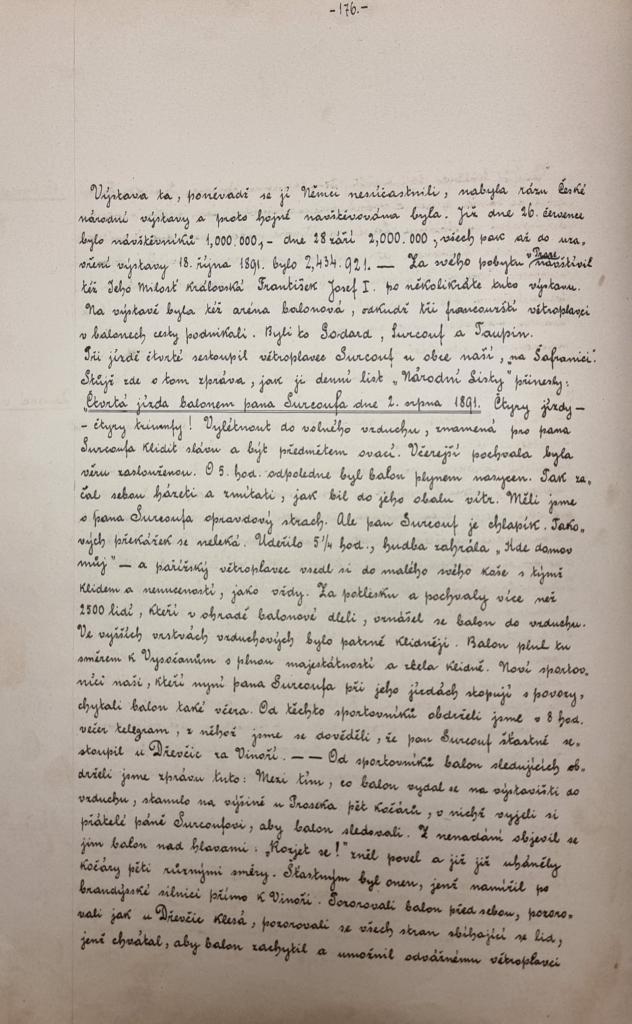 -176.-
Výstava ta, poněvadž se jí Němci nesúčastnili, nabyla rázu České
národní výstavy a proto hojně navštěvována byla. Již dne 26. července
bylo návštěvníků 1,000.000,- dne 28 září 2,000.000, všech pak až do uza-
vření výstavy 18. října 1891. bylo 2,434.921. — Za svého pobytu v Praze navštívil
též Jeho Milost Královská František Josef I. po několikráte tuto výstavu.
Na výstavě byla též aréna balonová, odkudž tři francouzští větroplavci
v balonech cesty podnikali. Byli to Godard, Surcouf a Taupin.
Při jízdě čtvrté sestoupil větroplavec Surcouf u obce naší, „na Šafranici".
Stůjž zde o tom zpráva, jak ji denní list „Národní Listy" přinesly:
„Čtvrtá jízda balonem pana Surcoufa dne 2. srpna 1891. Čtyry jízdy —
- čtyry triumfy! Vylétnout do volného vzduchu, znamená pro pana
Surcoufa klidit slávu a být předmětem ovací. Včerejší pochvala byla
věru zaslouženou. O 5. hod. odpoledne byl balon plynem nasycen. Tak za-
čal sebou házeti a zmítati, jak bil do jeho obalu vítr. Měli jsme
o pana Surcoufa opravdový strach. Ale pan Surcouf je chlapík. Tako-
vých překážek se neleká. Udeřilo 5¼ hod., hudba zahrála „Kde domov
můj" — a pařížský větroplavec vsedl si do malého svého koše s týmž
klidem a nenuceností, jako vždy. Za potlesku a pochvaly více než
2500 lidí, kteří v ohradě balonové dleli, vznášel se balon do vzduchu.
Ve vyšších vrstvách vzduchových bylo patrně klidněji. Balon plul tu
směrem k Vysočanům s plnou majestátností a zcela klidně. Noví sportov-
níci naši, kteří nyní pana Surcoufa při jeho jízdách stopují s povozy,
chytali balon také včera. Od těchto sportovníků obdrželi jsme o 8 hod.
večer telegram, z něhož jsme se dověděli, že pan Surcouf šťastně se-
stoupil u Dřevčic za Vinoří. — — Od sportovníků balon sledujících ob-
drželi jsme zprávu tuto: Mezi tím, co balon vydal se na výstavišti do
vzduchu, stanulo na výšině u Proseka pět kočárů, v nichž vyjeli si
přátelé páně Surcoufovi, aby balon sledovali. Z nenadání objevil se
jim balon nad hlavami: „Rozjet se!" zněl povel a již již uháněly
kočáry pěti různými směry. Šťastným byl onen, jenž namířil po
brandýské silnici přímo k Vinoři. Pozorovali balon před sebou, pozoro-
vali jak u Dřevčic klesá, pozorovali se všech stran sbíhající se lid,
jenž chvátal, aby balon zachytil a umožnil odvážnému větroplavci